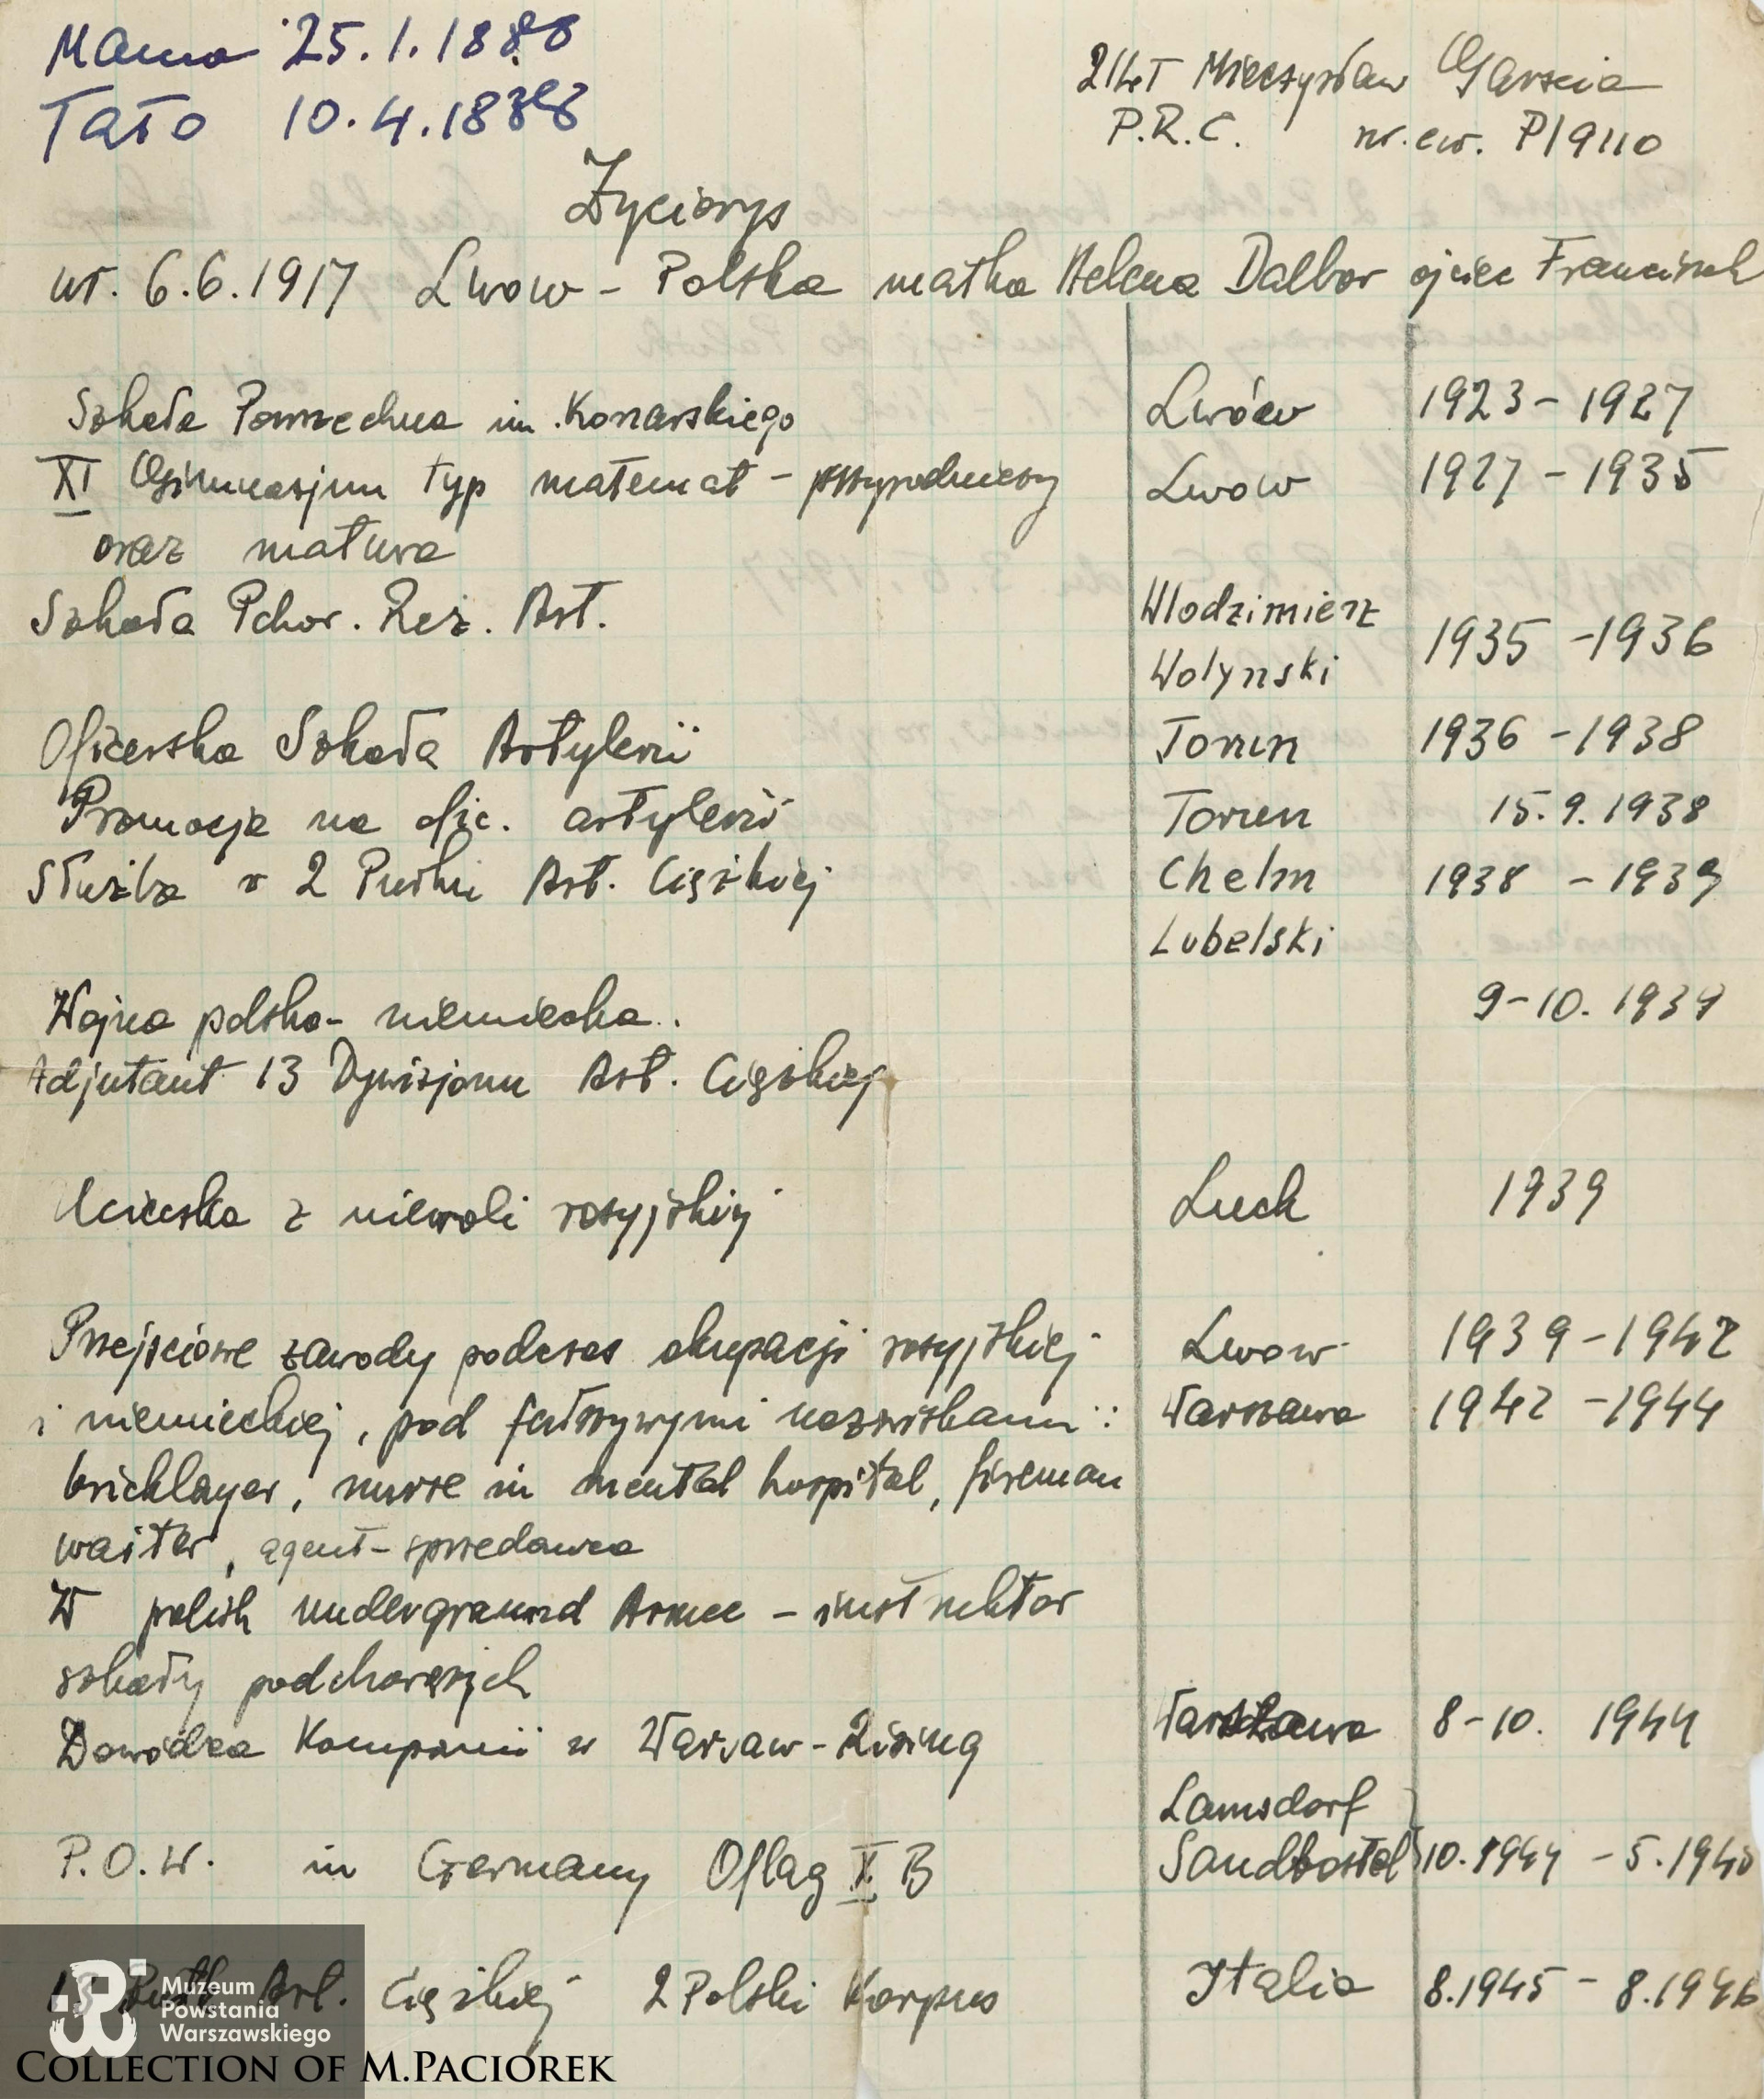 Mama 25.1.1888
Tato 10.4.18
2/Lt Mieczysław Garscia
P.R.C. nr. ew. P/9110
Życiorys
ur. 6.6.1917 Lwow - Polska matka Helena Dalbor ojciec Franciszek
Szkoła Powszechna im. Konarskiego Lwów 1923 - 1927
XI Gimnazjum typ matemat - przyrodniczy Lwow 1927 - 1935
oraz matura
Szkoła Pchor. Rez. Art. Wlodzimierz Wolynski 1935 - 1936
Oficerska Szkoła Artylerii Torun 1936 - 1938
Promocja na ofic. artylerii Torun 15.9.1938
Służba w 2 Pułku Art. Ciężkiej Chelm Lubelski 1938 - 1939
Wojna polsko - niemiecka. 9-10. 1939
Adjutant 13 Dywizjonu Art. Ciężkiej
Ucieczka z niewoli rosyjskiej Luck 1939
Przejsciowe zawody podczas okupacji rosyjskiej Lwow 1939 - 1942
i niemieckiej, pod fałszywymi nazwiskami: Warszawa 1942 - 1944
bricklayer, nurse in mental hospital, fireman
waiter, agent - sprzedawca
W polish undergraund Armee - instruktor
szkoły podchorążych
Dowódca Kompanii w Warsaw - Rising Warszawa 8-10. 1944
Lamsdorf
P.O.W. in Germany Oflag X B Sandbostel 10.1944 - 5.1945
Pułk Art. Ciężkiej 2 Polski Korpus Italia 8.1945 - 8.1946
Muzeum
Powstania
Warszawskiego
COLLECTION OF M.PACIOREK